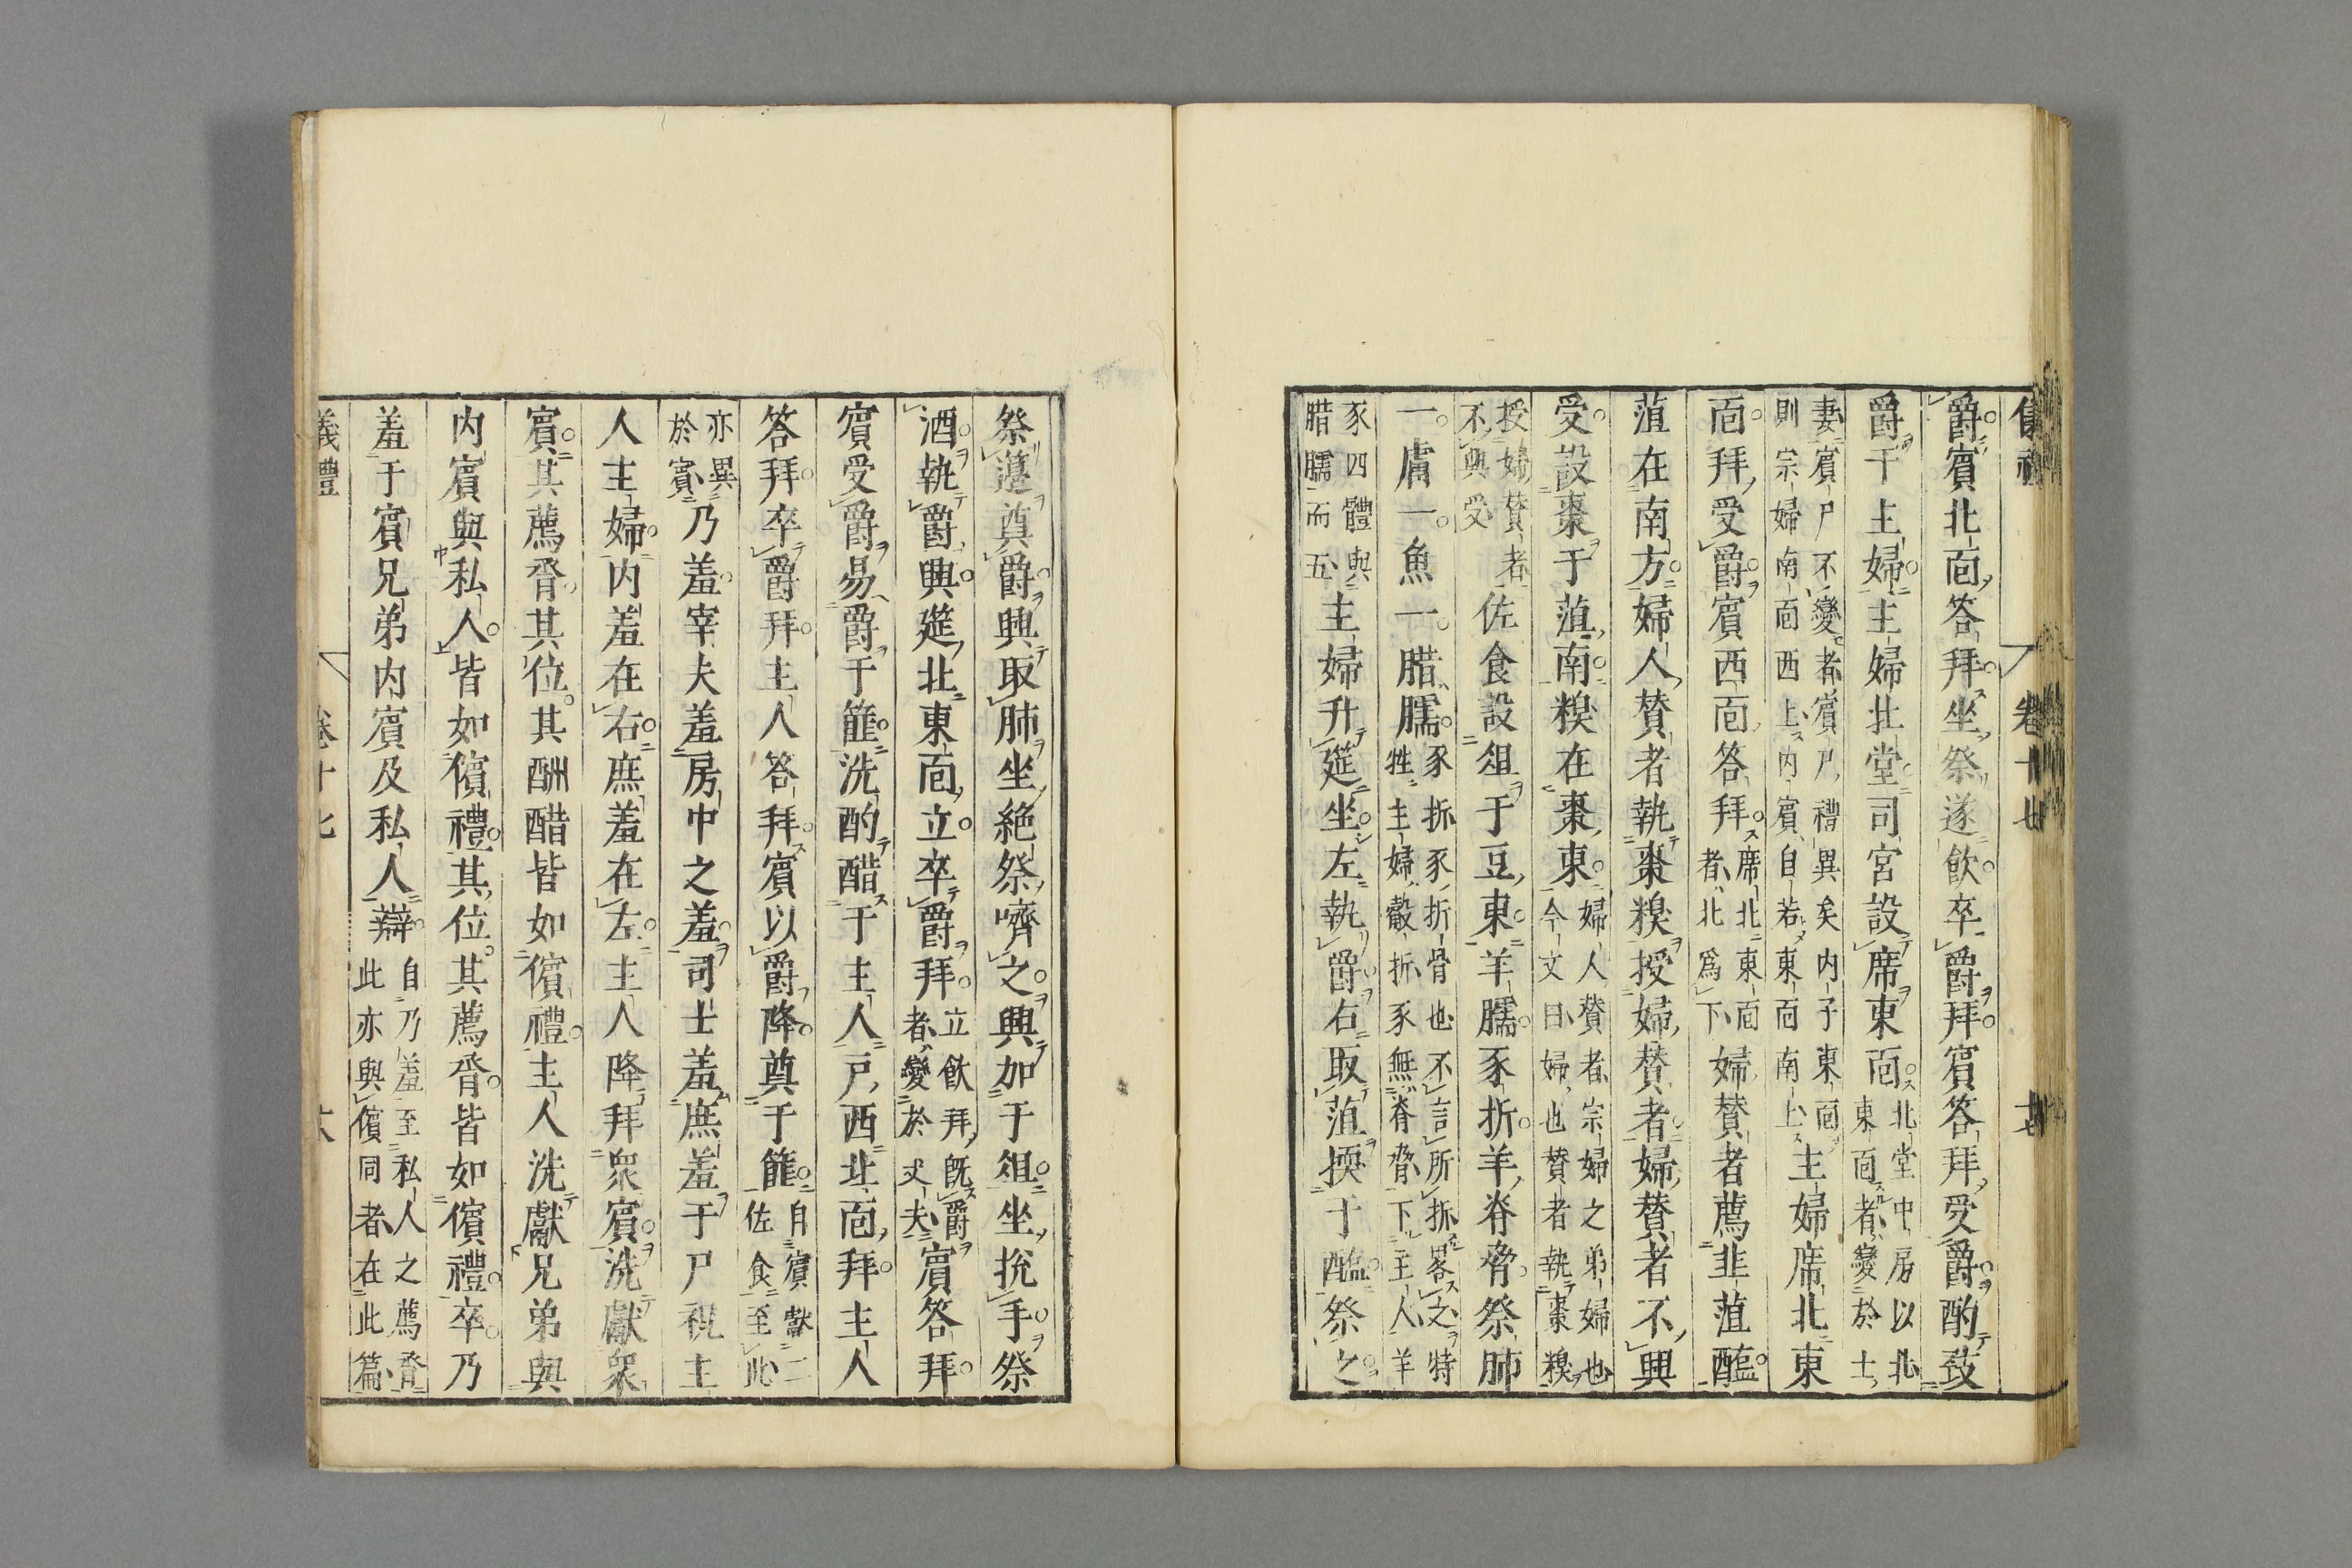 儀禮 卷十七 十七
爵賓北面答拜坐祭遂飲卒爵拜賓答拜受爵酌致
爵于主婦主婦北堂司宮設席東面北堂中房以北東面者變於士
妻賓尸不變者賓尸禮異矣內子東面則宗婦南面西上內賓自若東面南上主婦席北東
面拜受爵賓西面答拜席北東面者北爲下婦贊者薦韭菹醢
菹在南方婦人贊者執棗糗授婦贊者婦贊者不興
受設棗于菹南糗在棗東婦人贊者宗婦之弟婦也今文曰婦也贊者執棗糗
授婦贊者不興受佐食設俎于豆東羊臑豕折羊脊脅祭肺
一膚一魚一腊臑豕折豕折骨也不言所折畧之特牲主婦觳折豕無脊脅下主人羊
豕四體與腊臑而五主婦升筵坐左執爵右取菹㨎于醢祭之
祭籩奠爵興取肺坐絕祭嚌之興加于俎坐挩手祭
酒執爵興筵北東面立卒爵拜立飲拜既爵者變於丈夫賓答拜
賓受爵易爵于篚洗酌醋于主人戶西北面拜主人
答拜卒爵拜主人答拜賓以爵降奠于篚自賓獻二佐食至此
亦異於賓乃羞宰夫羞房中之羞司士羞庶羞于尸祝主
人主婦內羞在右庶羞在左主人降拜衆賓洗獻衆
賓其薦脀其位其酬醋皆如儐禮主人洗獻兄弟與
內賓與私人皆如儐禮其位其薦脀皆如儐禮卒乃
羞于賓兄弟內賓及私人辯自乃羞至私人之薦脀此亦與儐同者在此篇
義禮 卷十七